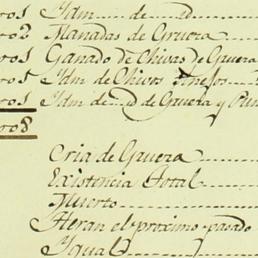 ros1 Jdm... de... d...
ro2 Manadas de Gruera
ros1 Ganado de Chivas de Gruera
ros5 Jdm de Chivos Añejos
ros1 Jdm de... d de Gruera y Pun
ro8
Cria de Gruera
Existencia total
Muerto
Heran el proximo pasado
Ygual